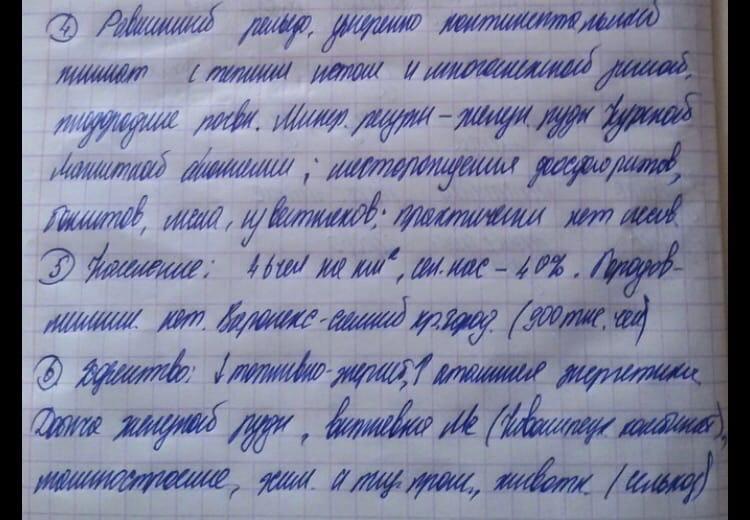 ④ Равнинный рельеф, умеренно континентальный
климат с теплым летом и многоснежной зимой,
плодородные почвы. Минер. ресурсы – железн. руды Курской
Магнитной аномалии; месторождения фосфоритов,
бокситов, мела, известняков; практически нет лесов.
⑤ Население: 46 чел на км², сел. нас – 40%. Городов-
миллион. нет. Воронеж – самый кр. город. (900 тыс. чел)
⑥ Хозяйство: ↓ топливно-энергет, ↑ атомная энергетика
Добыча железной руды, выплавка Ме (Новолипецк. комбинат),
машиностроение, хим. и пищ. пром., животн. (сельхоз)